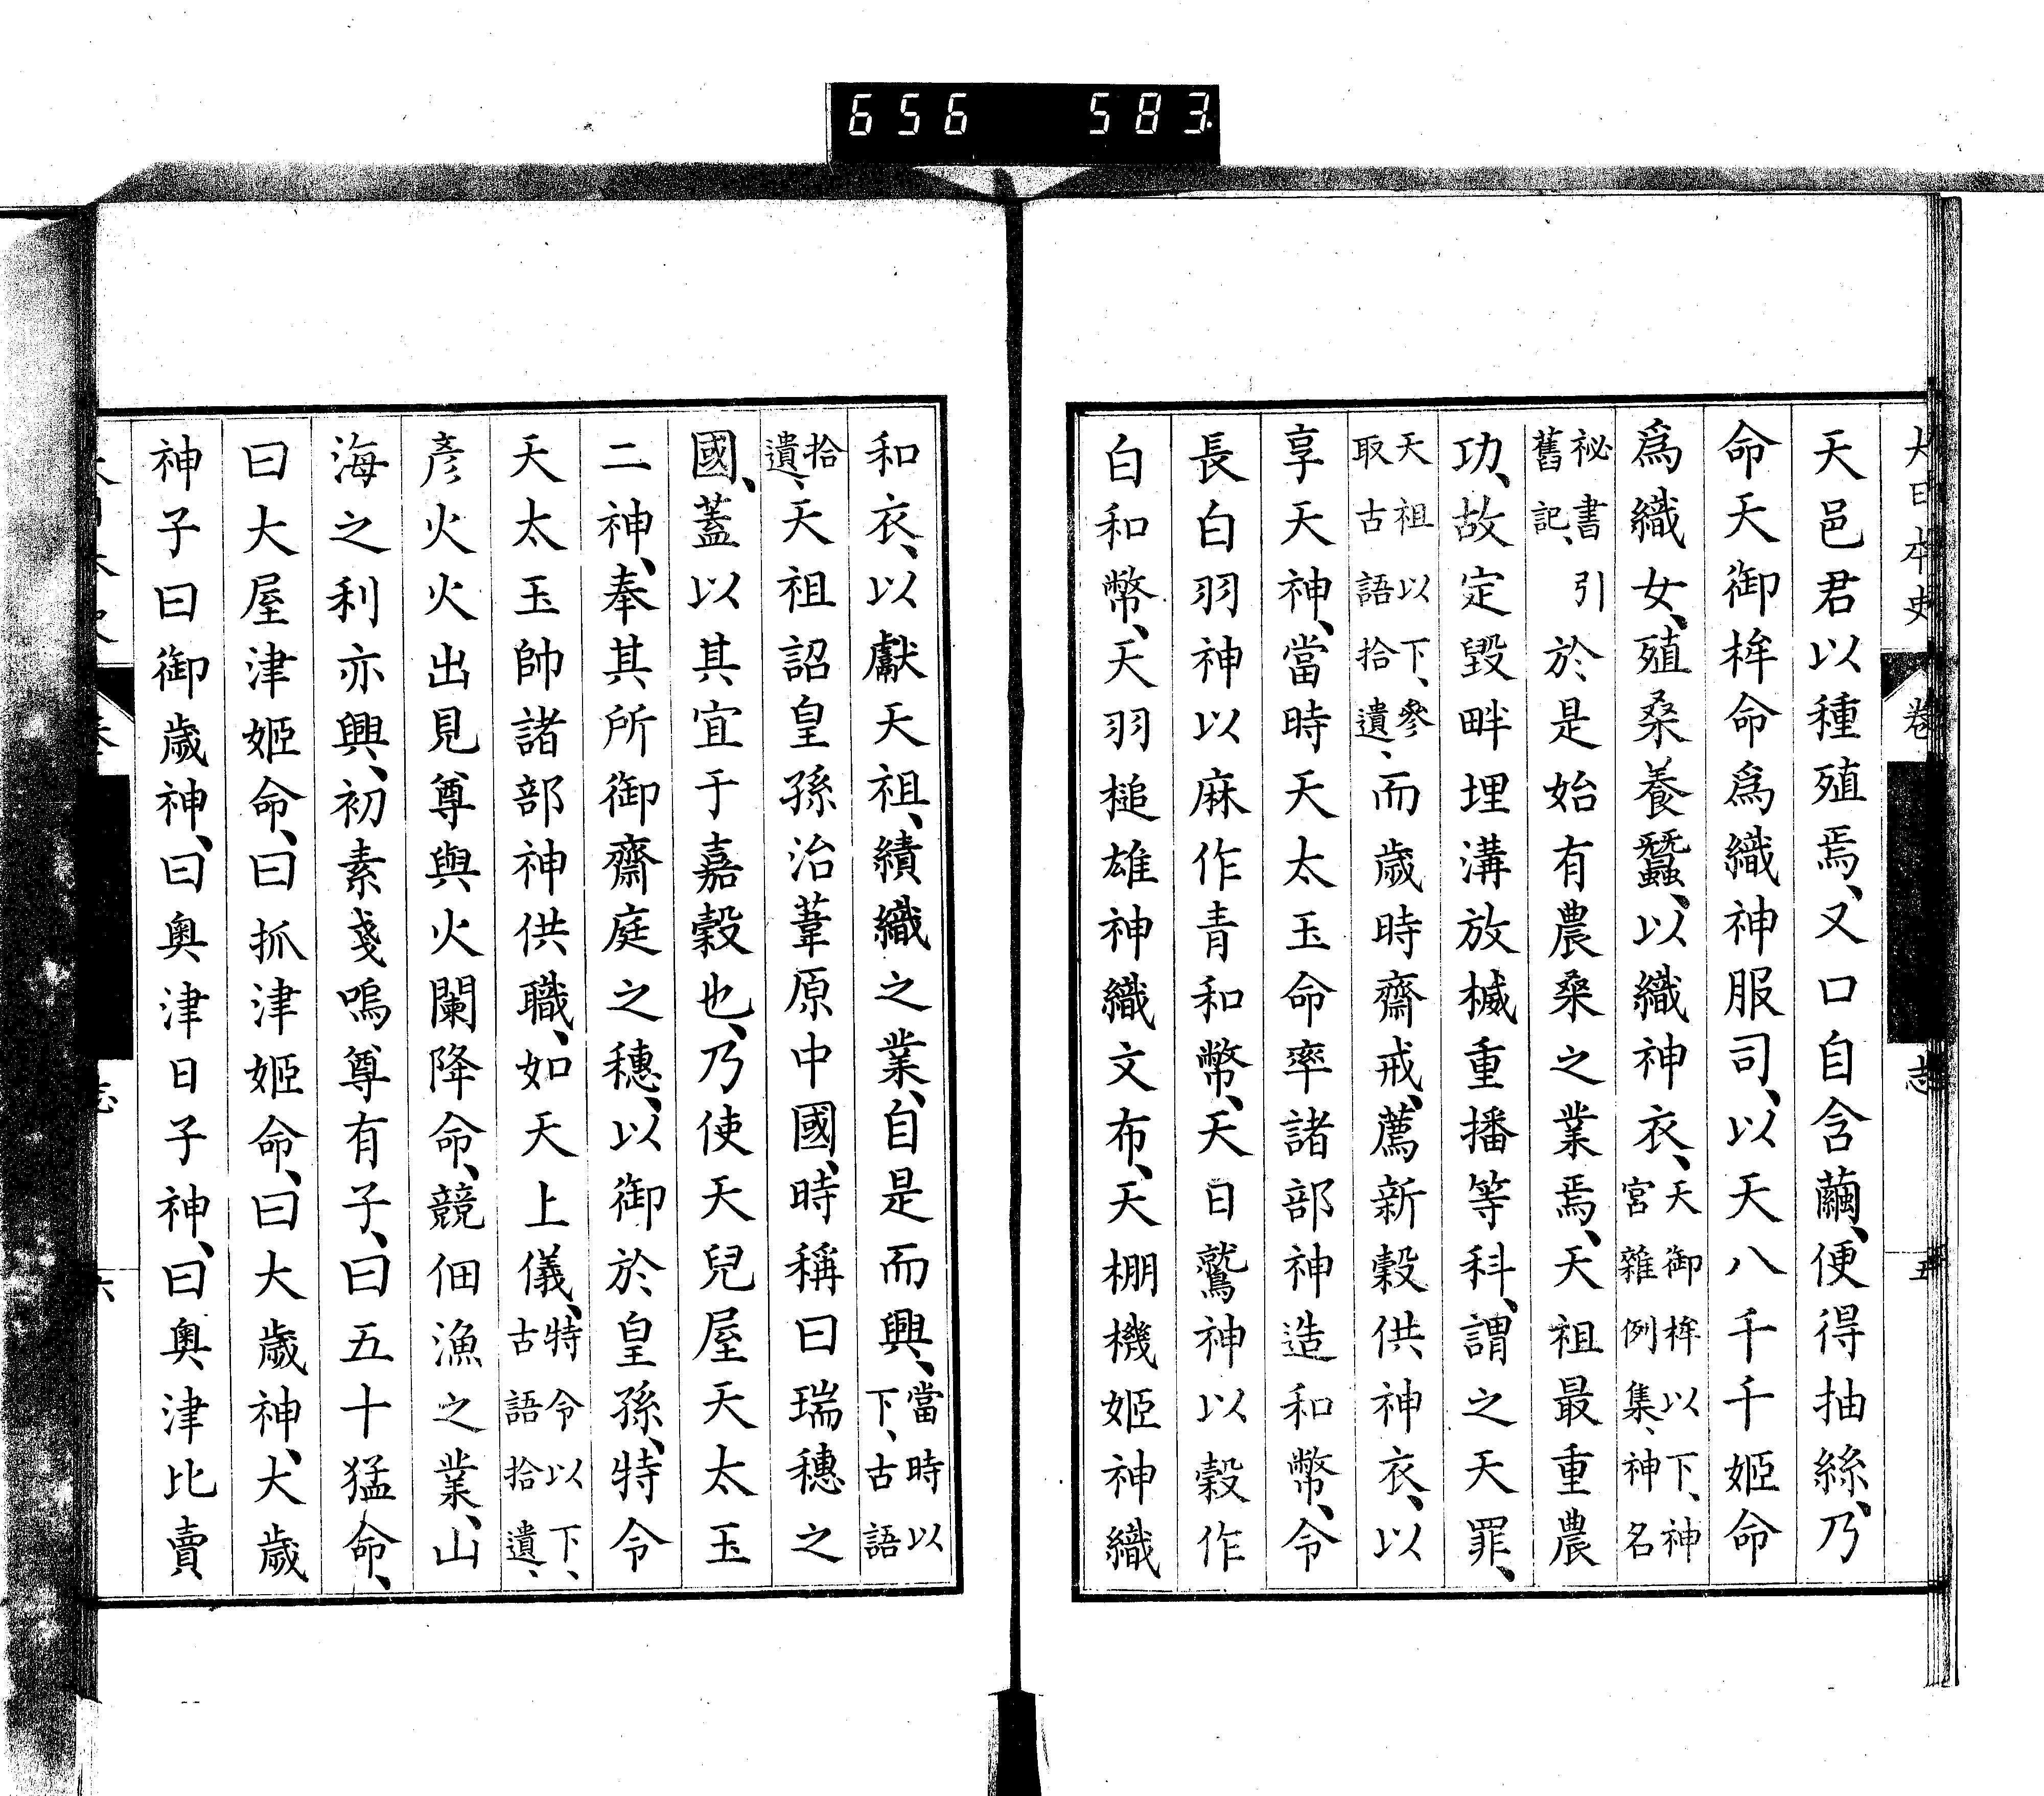 656 583
大日本史 卷 志 五
天邑君以種殖焉、又口自含繭、便得抽絲、乃
命天御桙命爲織神服司、以天八千千姬命
爲織女、殖桑養蠶、以織神衣、天御桙以下、神宮雜例集、神名
祕書引舊記、於是始有農桑之業焉、天祖最重農
功、故定毀畔埋溝放樴重播等科、謂之天罪、
天祖以下、參取古語拾遺、而歲時齋戒、薦新穀供神衣、以
享天神、當時天太玉命率諸部神造和幣、令
長白羽神以麻作青和幣、天日鷲神以穀作
白和幣、天羽槌雄神織文布、天棚機姬神織
和衣、以獻天祖、績織之業、自是而興、當時以下、古語
拾遺、天祖詔皇孫治葦原中國、時稱曰瑞穗之
國、蓋以其宜于嘉穀也、乃使天兒屋天太玉
二神、奉其所御齋庭之穗、以御於皇孫、特令
天太玉帥諸部神供職、如天上儀、特令以下、古語拾遺、
彥火火出見尊與火闌降命、競佃漁之業、山
海之利亦興、初素戔嗚尊有子、曰五十猛命、
曰大屋津姬命、曰抓津姬命、曰大歲神、大歲
神子曰御歲神、曰奧津日子神、曰奧津比賣
志 六